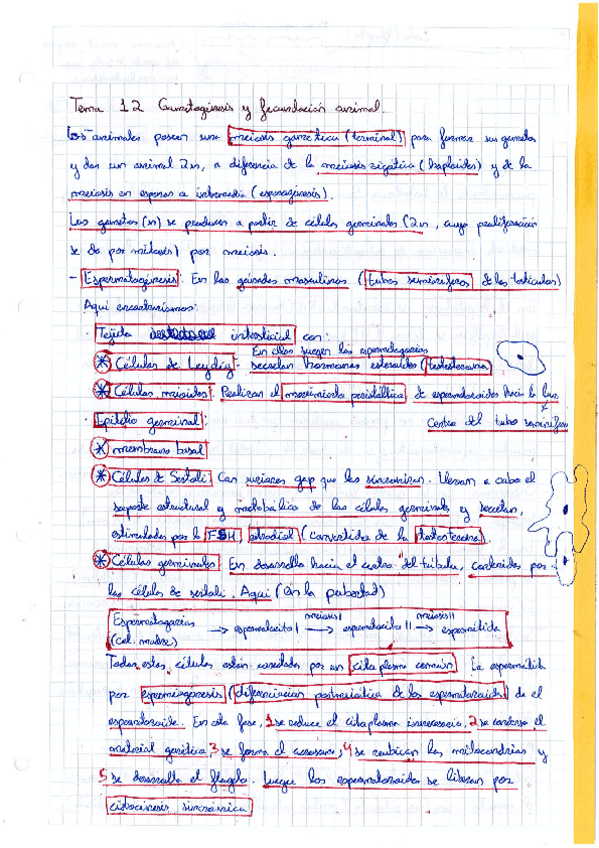 Tema 12 Gametogénesis y fecundación animal.
Los animales poseen una meiosis gamética (terminal) para formar sus gametos
y dan un animal 2n, a diferencia de la meiosis zigótica (haploides) y de la
meiosis en esporas o intermedia (esporogénesis).
Los gametos (n) se producen a partir de células germinales (2n, cuya proliferación
se da por mitosis) por meiosis.
- Espermatogénesis: En las gónadas masculinas (tubos seminíferos de los testículos)
Aquí encontramos:
· Tejido intersticial con:
En ellas surgen las espermatogonias
* Células de Leydig- secretan hormonas esteroides (testosterona
* Células mioides: Realizan el movimiento peristáltico de espermatozoides hacia la luz
centro del tubo seminífero
· Epitelio germinal:
* membrana basal
* Células de Sertoli: Con uniones gap que las sincronizan. Llevan a cabo el
soporte estructural y metabólico de las células germinales y secretan,
estimuladas por la FSH, estradiol (convertida de la testosterona).
* Células germinales En desarrollo hacia el centro del túbulo, contenidas por
las células de sertoli. Aquí (en la pubertad)
Espermatogonias → espermatocito I meiosis I → espermatocito II meiosis II → espermátida
(cel. madre)
Todas estas células están conectadas por un citoplasma común. La espermátida
por espermiogénesis (diferenciación postmeiótica de los espermatozoides) da el
espermatozoide. En esta fase, 1 se reduce el citoplasma innecesario, 2 se condensa el
material genético, 3 se forma el acrosoma, 4 se reubican las mitocondrias y
5 se desarrolla el flagelo. Luego los espermatozoides se liberan por
citocinesis sincrónica